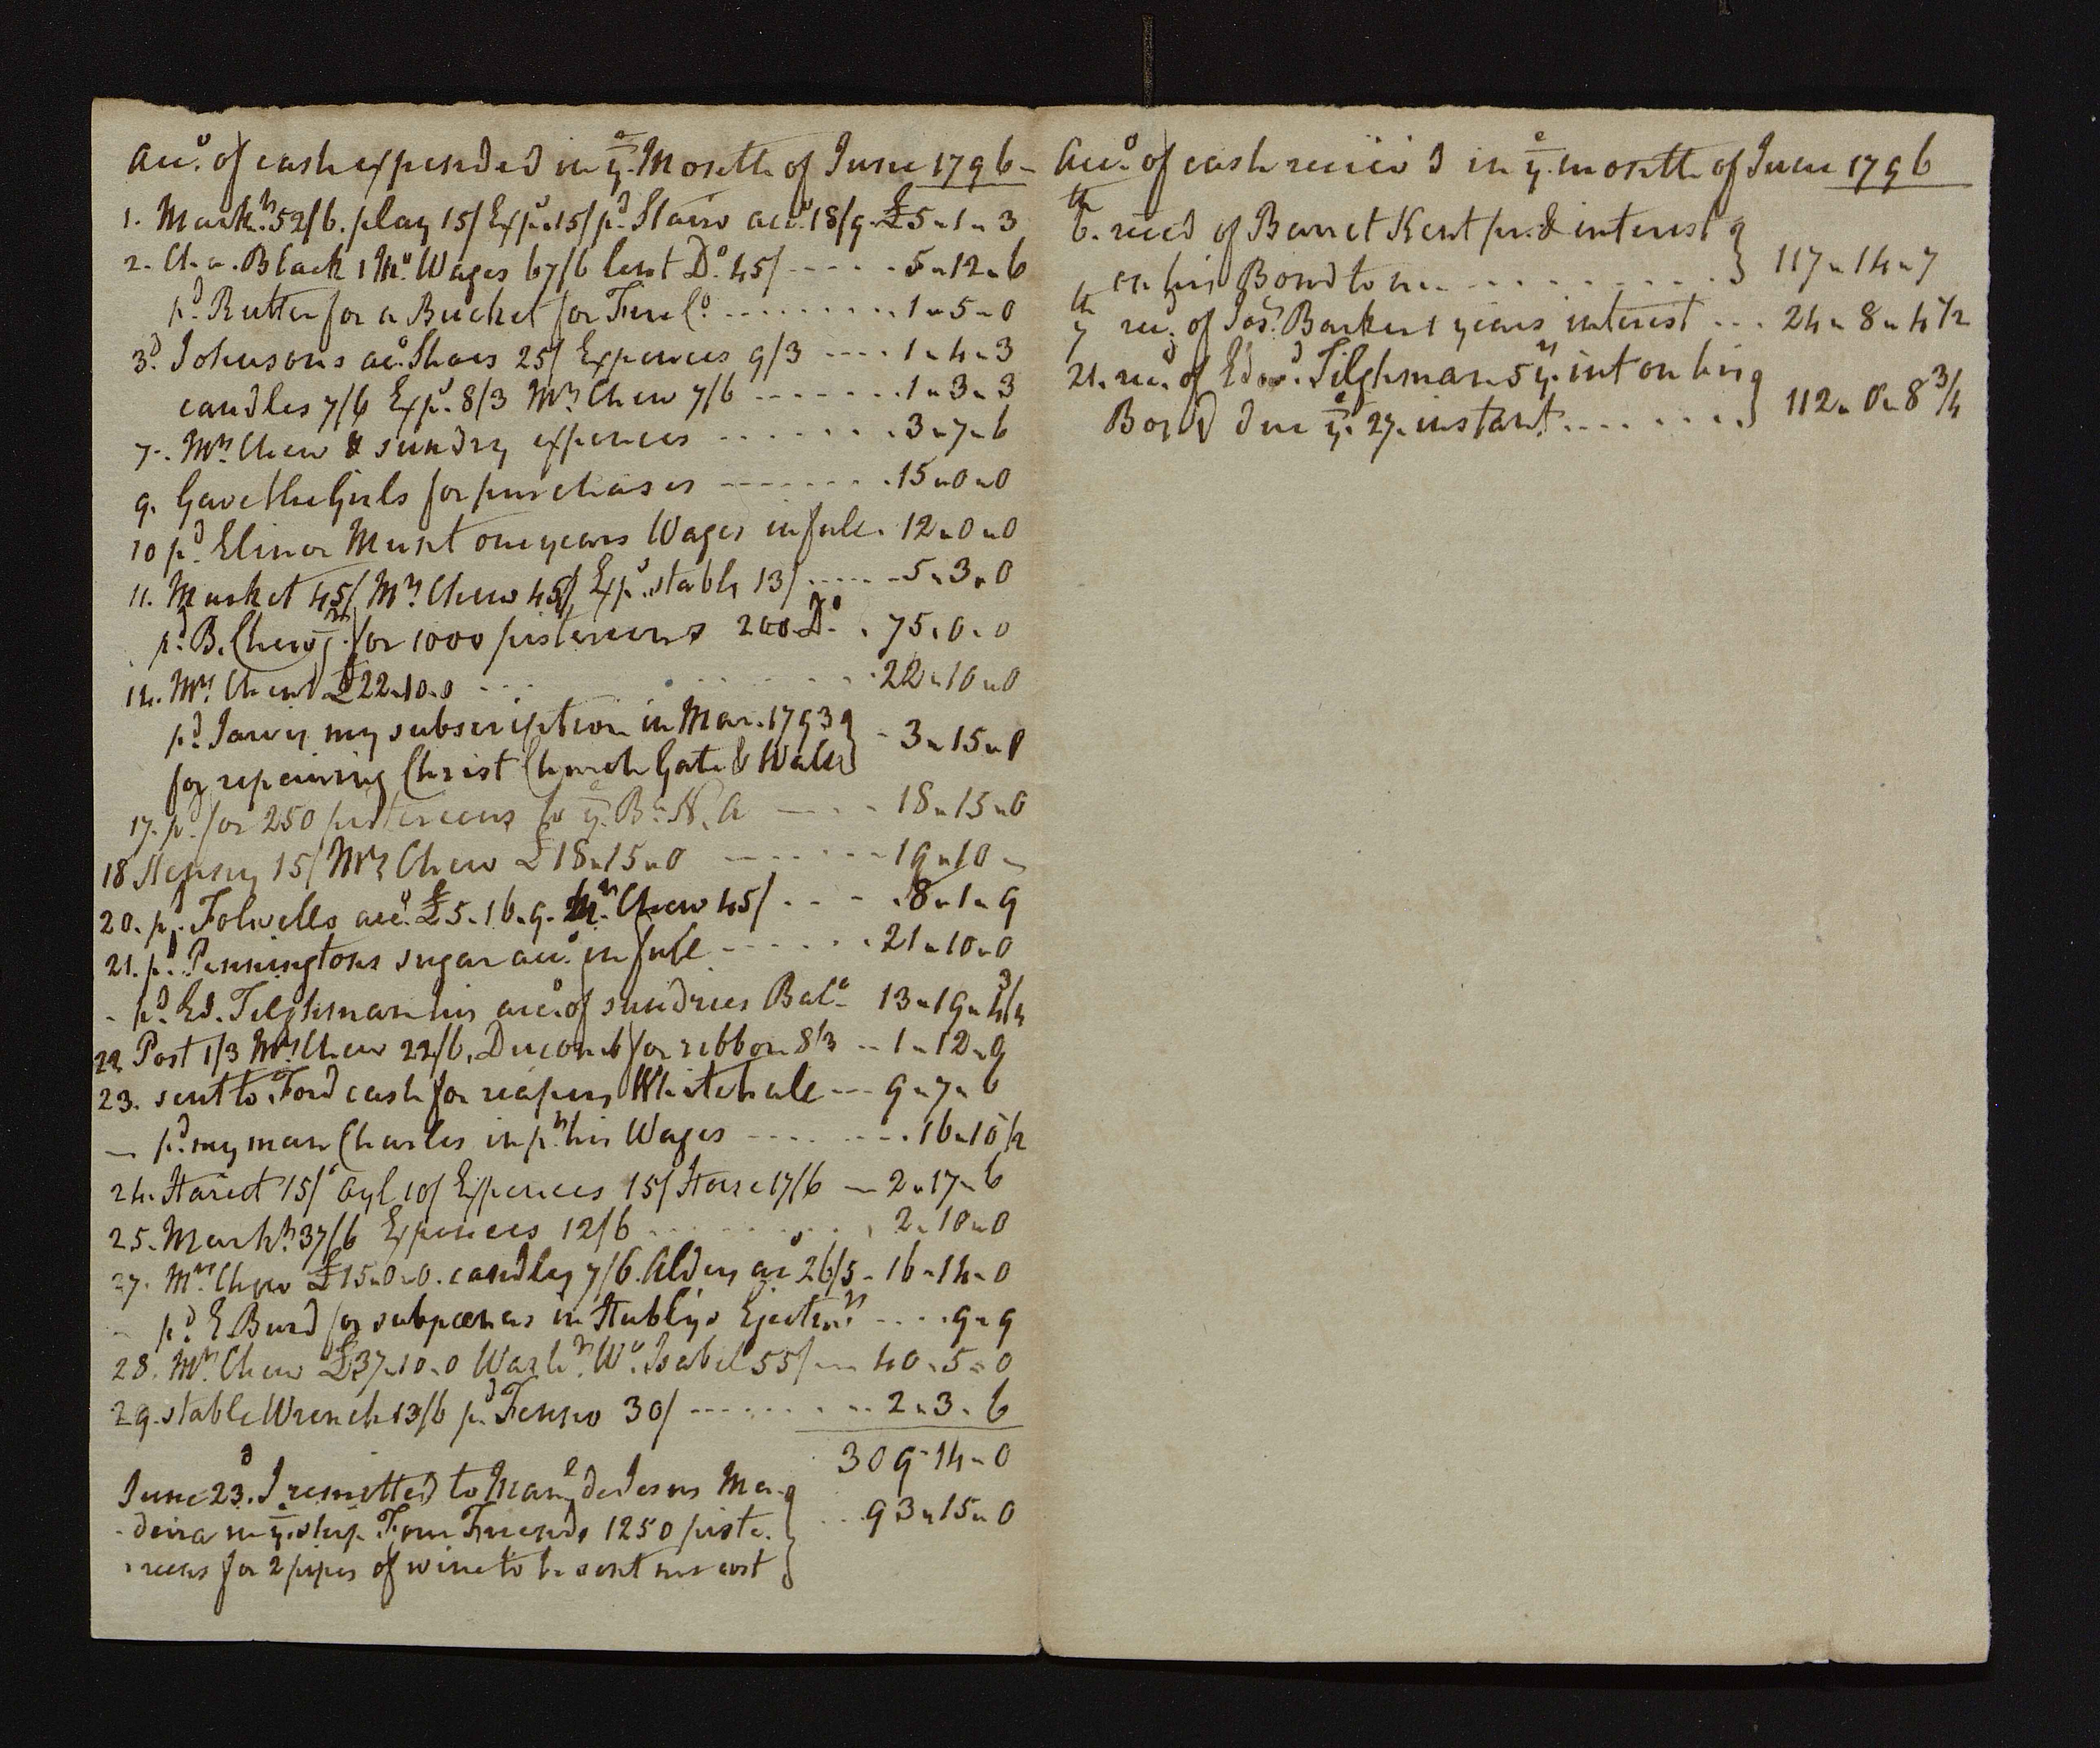 Acco. of cash expended in ye. Month of June 1796 -
1. Markt. 52/6. play 15/ Exps. 15/ pd. Stairs acco. 18/9. £5 " 1 " 3
2. Cha. Black 1 Mo. Wages 67/6 lent Do. 45/ - - - - - 5 " 12 " 6
pd. Rutter for a Bucket for Fire Co. - - - - - - - - - 1 " 5 " 0
3d. Johnsons ac. Shoes 25/ Expences 9/3 - - - - 1 " 4 " 3
candles 7/6 Exps. 8/3 Mrs. Chew 7/6 - - - - - - - 1 " 3 " 3
7. Mrs. Chew & sundry expences - - - - - - - 3 " 7 " 6
9. Gave the Girls for purchases - - - - - - - 15 " 0 " 0
10 pd. Elinor one years Wages in full. 12 " 0 " 0
11. Market 45/ Mrs. Chew 45/ Exps. stable 13/ - - - - - 5 " 3 " 0
pd. B. Chew jr. for 1000 pistereens 200 Do. . 75 . 0 . 0
14. Mrs. Chew £22 " 10 " 0 - - - - - - - 22 " 10 " 0
pd. Jarvis my subscription in Mar. 1793 } - 3 " 15 " 0
for repairing Christ Church Gate & Walls
17. pd. for 250 pistereens to ye. Bk. N. A - - - - 18 " 15 " 0
18 Henny 15/ Mrs. Chew £18 " 15 " 0 - - - - - - - 19 " 10 "
20. pd. Folwells acco. £5 . 16 . 9. Mrs. Chew 45/ - - - - 8 " 1 " 9
21. pd. Penningtons sugar acco. in full - - - - - - 21 " 10 " 0
- pd. Ed. Tilghman his acco. of sundries Bale. 13 " 19 " 4 3/4
22 Post 1/3 Mrs. Chew 22/6, Ducomb for ribbon 8/3 - - 1 " 12 " 9
23. sent to Ford cash for reapers Whitehall - - - 9 " 7 " 6
— pd. my man Charles in pt. his Wages - - - - - - - 16 " 10 1/2
24. 15/ Oyl 10/ Expences 15/ Horse 17/6 — 2 " 17 " 6
25. Markt. 37/6 Expences 12/6 - - - - - - - 2 " 10 " 0
27. Mrs. Chew £15 " 0 " 0. candles 7/6. Aldens ac 26/5 - 16 " 14 " 0
- pd. E. Burd for subpœnas in Ejectmt. - - - - 9 " 9
28. Mrs. Chew £37 " 10 " 0 Washg. Wo. Isabel 55/ - - 40 " 5 " 0
29. stable Wrench 13/6 pd. Fenno 30/ - - - - - - - - 2 " 3 " 6
309 " 14 " 0
June 23d. I remitted to Manl. de Jesus Ma- }
- deira in ye. ship Four Friends 1250 piste. } - - 93 " 15 " 0
- reens for 2 pipes of wine to be sent me cost }
Acco. of cash receiv'd in ye. month of June 1796
6th. recd. of Barret Kent pr. & interest }
on his Bond to me - - - - - - - - - - } 117 " 14 " 7
7th recd. of Jos. Barker 1 years interest - - - 24 " 8 " 4 1/2
21. recd. of Edwd. Tilghman 5 ys. int on his }
Bond due ye. 27. instant - - - - - - - } 112 " 0 " 8 3/4